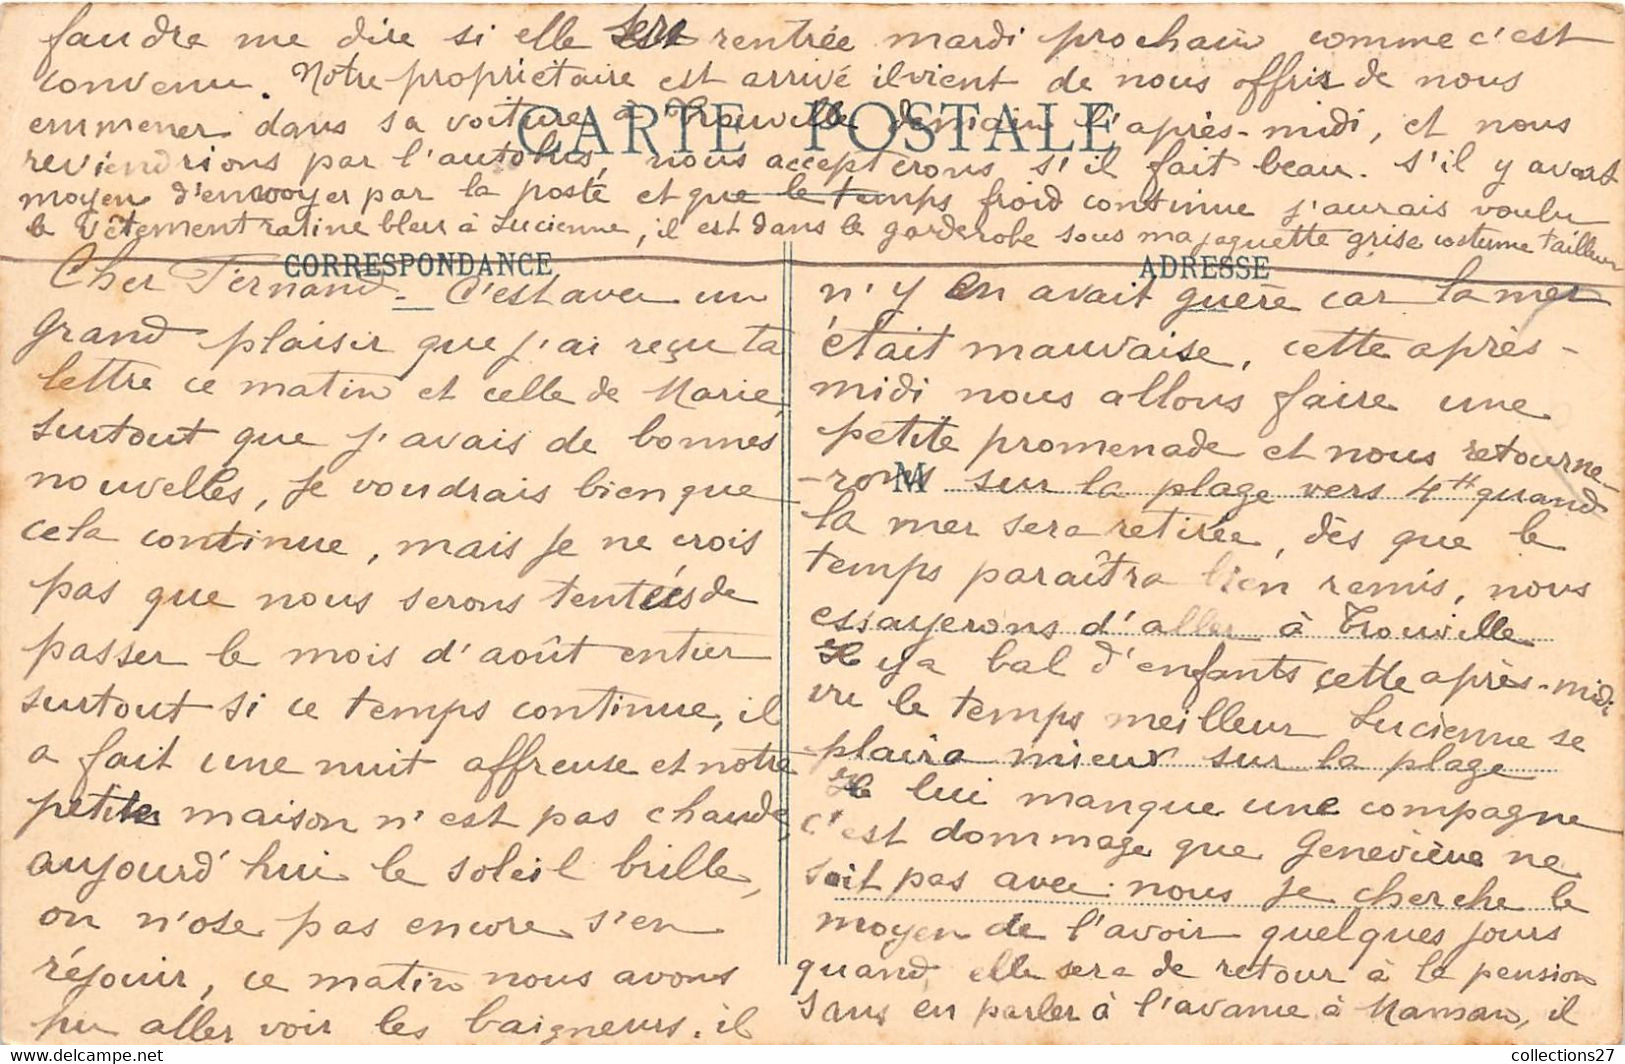 Cher Fernand. C'est avec un
grand plaisir que j'ai reçu ta
lettre ce matin et celle de Marie,
surtout que j'avais de bonnes
nouvelles, je voudrais bien que
cela continue, mais je ne crois
pas que nous serons tentées de
passer le mois d'août entier
surtout si ce temps continue, il
a fait une nuit affreuse et notre
petite maison n'est pas chaude,
aujourd'hui le soleil brille,
on n'ose pas encore s'en
réjouir, ce matin nous avons
pu aller voir les baigneurs. il
n'y en avait guère car la mer
était mauvaise, cette après-
midi nous allons faire une
petite promenade et nous retourne-
-rons sur la plage vers 4 H quand
la mer sera retirée, dès que le
temps paraîtra bien remis, nous
essayerons d'aller à Trouville
Il y a bal d'enfants cette après-midi
vu le temps meilleur Lucienne se
plaira mieux sur la plage
Il lui manque une compagne
c'est dommage que Geneviève ne
soit pas avec nous je cherche le
moyen de l'avoir quelques jours
quand elle sera de retour à la pension
sans en parler à l'avance à Maman, il
faudra me dire si elle sera rentrée mardi prochain comme c'est
convenu. Notre propriétaire est arrivé il vient de nous offrir de nous
emmener dans sa voiture à Trouville demain l'après-midi, et nous
reviendrions par l'autobus, nous accepterons s'il fait beau. S'il y avait
moyen d'envoyer par la poste et que le temps froid continue j'aurais voulu
le vêtement ratine bleu à Lucienne, il est dans le garderobe sous ma jaquette grise costume tailleur
CARTE POSTALE
CORRESPONDANCE
ADRESSE
M
collections27